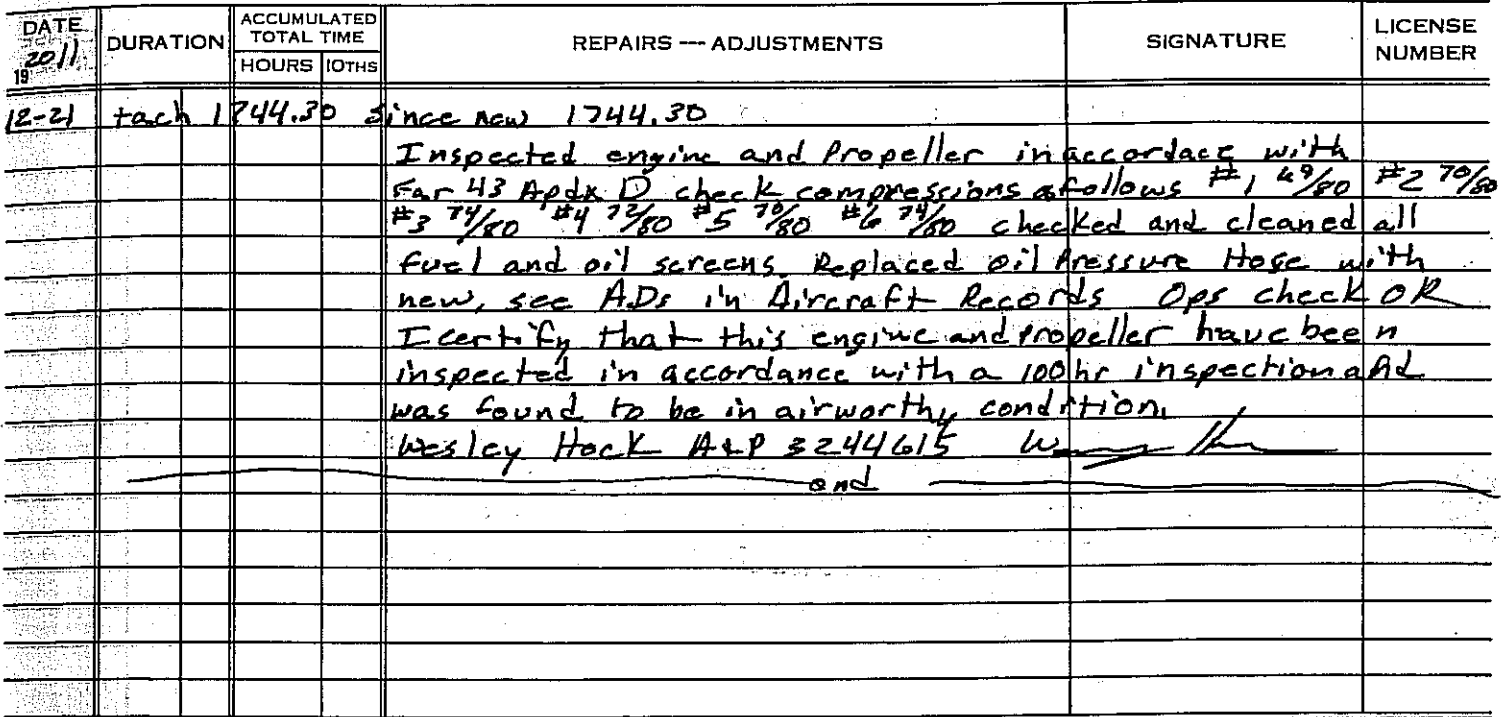 DATE DURATION ACCUMULATED TOTAL TIME REPAIRS --- ADJUSTMENTS SIGNATURE LICENSE NUMBER
19 2011 HOURS 10THS
12-21 tach 1744.30 since new 1744.30
Inspected engine and Propeller in accordace with
Far 43 Apdx D check compressions as follows #1 69/80 #2 70/80
#3 74/80 #4 72/80 #5 70/80 #6 74/80 checked and cleaned all
fuel and oil screens. Replaced oil Pressure Hose with
new, see ADs in Aircraft Records Ops check OK
I certify that this engine and propeller have been
inspected in accordance with a 100 hr inspection and
was found to be in airworthy condition.
Wesley Hock A&P 3244615
end